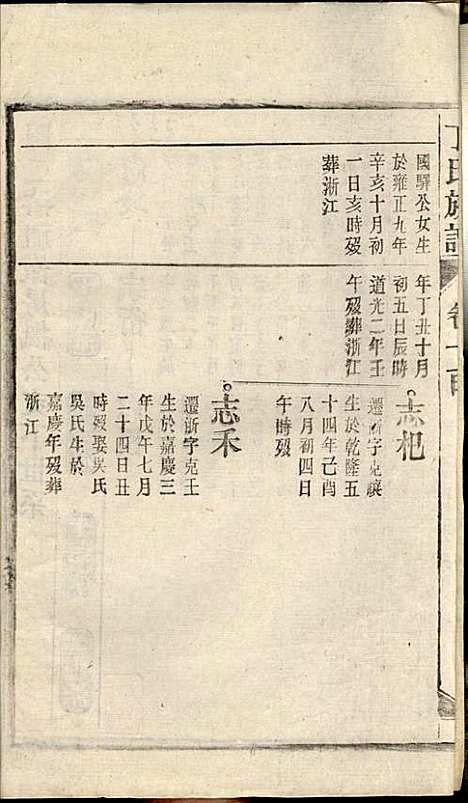 丁氏族譜
卷一百
國驛公女生
於雍正九年
辛亥十月初
一日亥時歿
葬浙江
年丁丑十月
初五日辰時
道光二年壬
午歿葬浙江
志杞
遷浙字克
生於乾隆五
十四年己酉
八月初四日
午時歿
志禾
遷浙字克王
生於嘉慶三
年戊午七月
二十四日丑
時歿娶吳氏
吳氏生於
嘉慶年歿葬
浙江